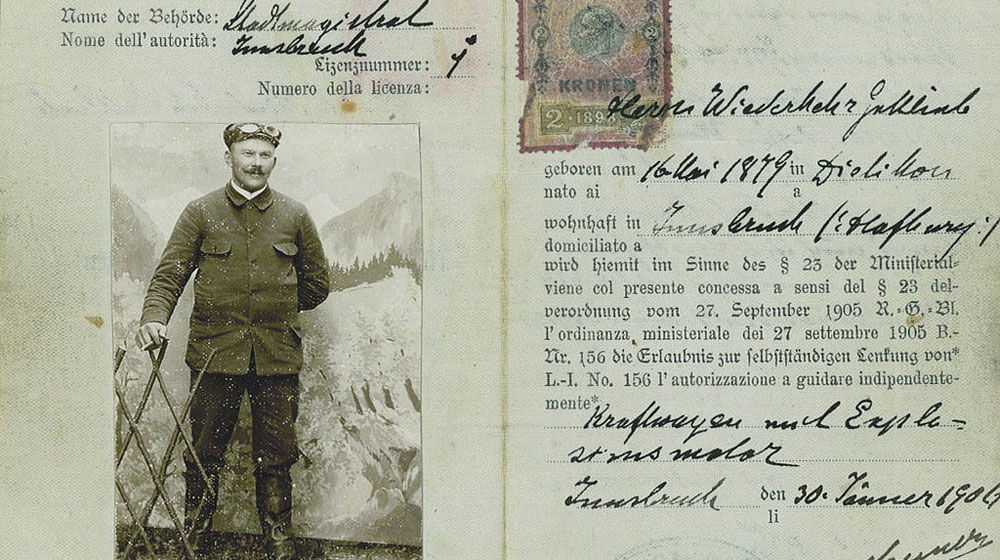 Name der Behörde: Stadtmagistrat
Nome dell'autorità: Innsbruck
Lizenznummer: 1
Numero della licenza:
2 2
KRONEN
2·1898
Herrn Wiederkehr Gottlieb
geboren am 16 Mai 1879 in Dietikon
nato ai a
wohnhaft in Innsbruck (: Hofburg :)
domiciliato a
wird hiemit im Sinne des § 23 der Ministerial-
viene col presente concessa a sensi del § 23 del-
verordnung vom 27. September 1905 R.-G.-Bl.
l'ordinanza ministeriale dei 27 settembre 1905 B.-
Nr. 156 die Erlaubnis zur selbstständigen Lenkung von*
L.-I. No. 156 l'autorizzazione a guidare indipendente-
mente*
Kraftwagen mit Explo-
sionsmotor
Innsbruck den 30. Jänner 190
li